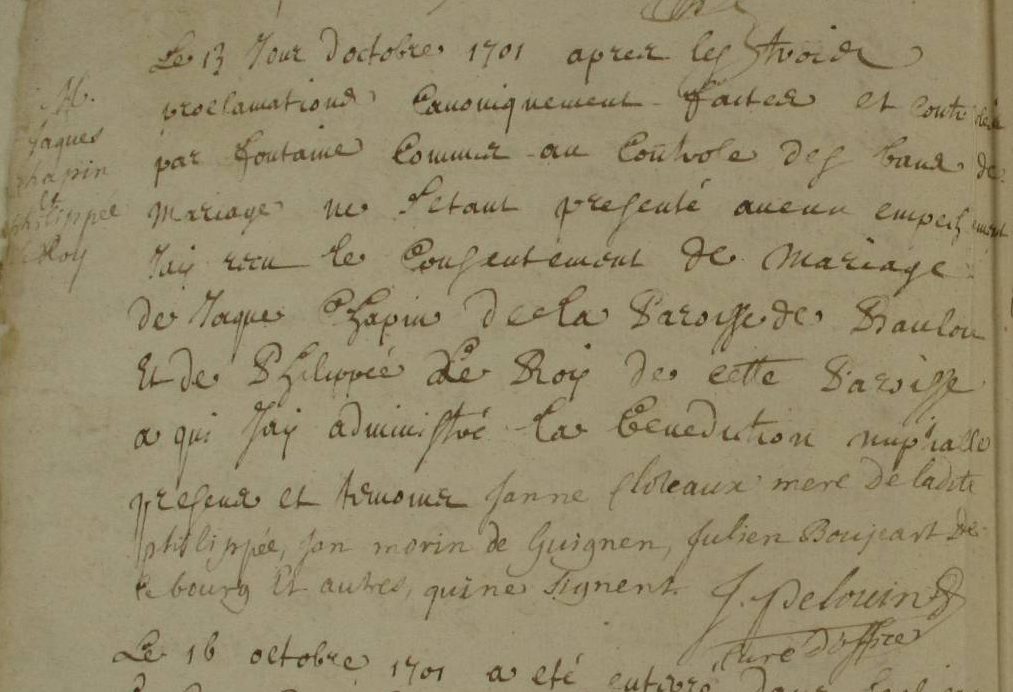 Le 13 Jour doctobre 1701 apres les trois
proclamations Canoniquement faites et
par fontaine Commis au Controle des bans de
Mariage ne Setant presenté aucun empeschement
Jay recu le Consentement de Mariage
de Jaque Chapin de la Paroisse de Baulon
Et de Philippée Le Roy de cette Paroisse
a qui Jay administré la Benediction nuptialle
presens et temoins Janne mere de ladite
philippée, Jan morin de Guignen, Julien Boujeart de
ce bourg Et autres, qui ne signent. J. Pelouin
curé d'office
M.
Jaques
Chapin
et
philippée
le Roy
Le 16 octobre 1701 a eté enterré dans